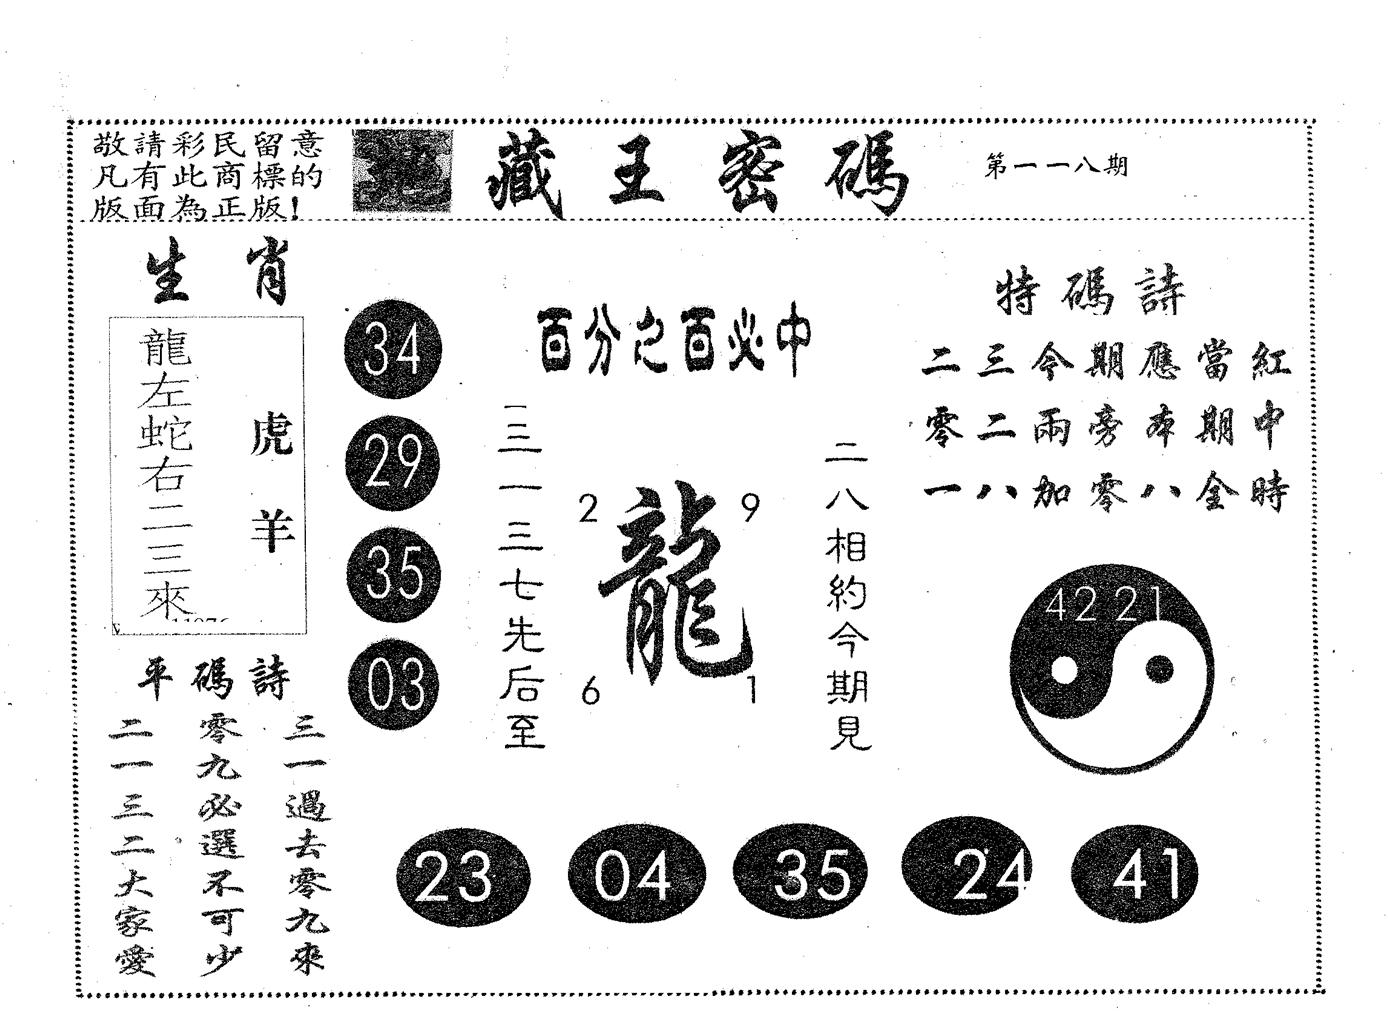 敬請彩民留意
凡有此商標的
版面為正版!
藏王密碼
第一一八期
生肖
龍左蛇右二三來
虎羊
34
29
35
03
百分之百必中
一三一三七先后至
2
9
龍
6
1
二八相約今期見
特碼詩
二三今期應當紅
零二兩旁本期中
一八加零八全時
42 21
平碼詩
三一過去零九來
零九必選不可少
二一三二大家愛
23
04
35
24
41